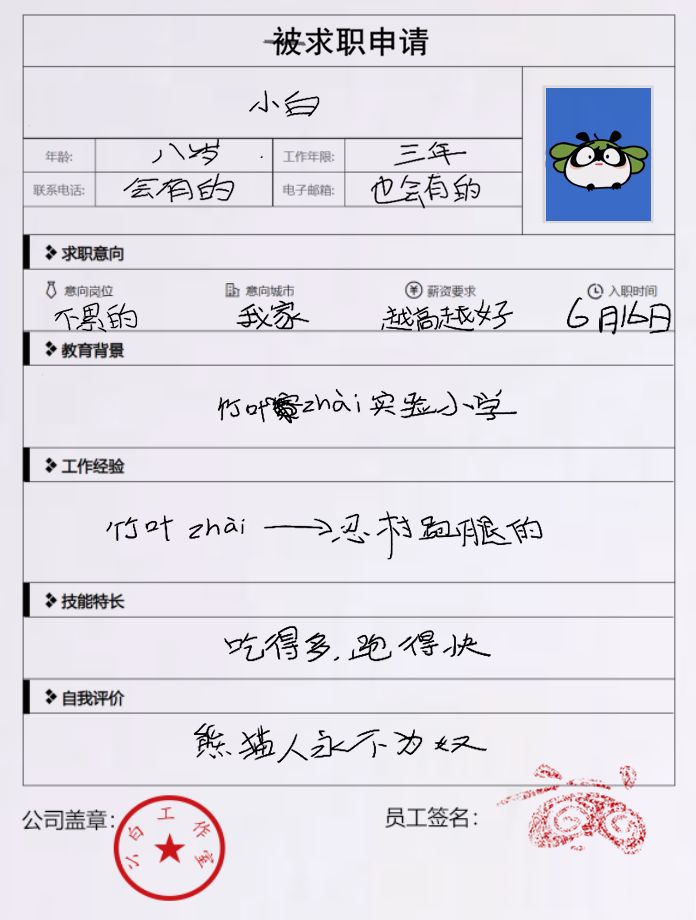 被求职申请
小白
年龄: 八岁 工作年限: 三年
联系电话: 会有的 电子邮箱: 也会有的
求职意向
意向岗位 意向城市 薪资要求 入职时间
不累的 我家 越高越好 6月16日
教育背景
竹叶zhài实验小学
工作经验
竹叶zhài→忍村跑腿的
技能特长
吃得多.跑得快
自我评价
熊猫人永不为奴
公司盖章: 小白工作室 员工签名: